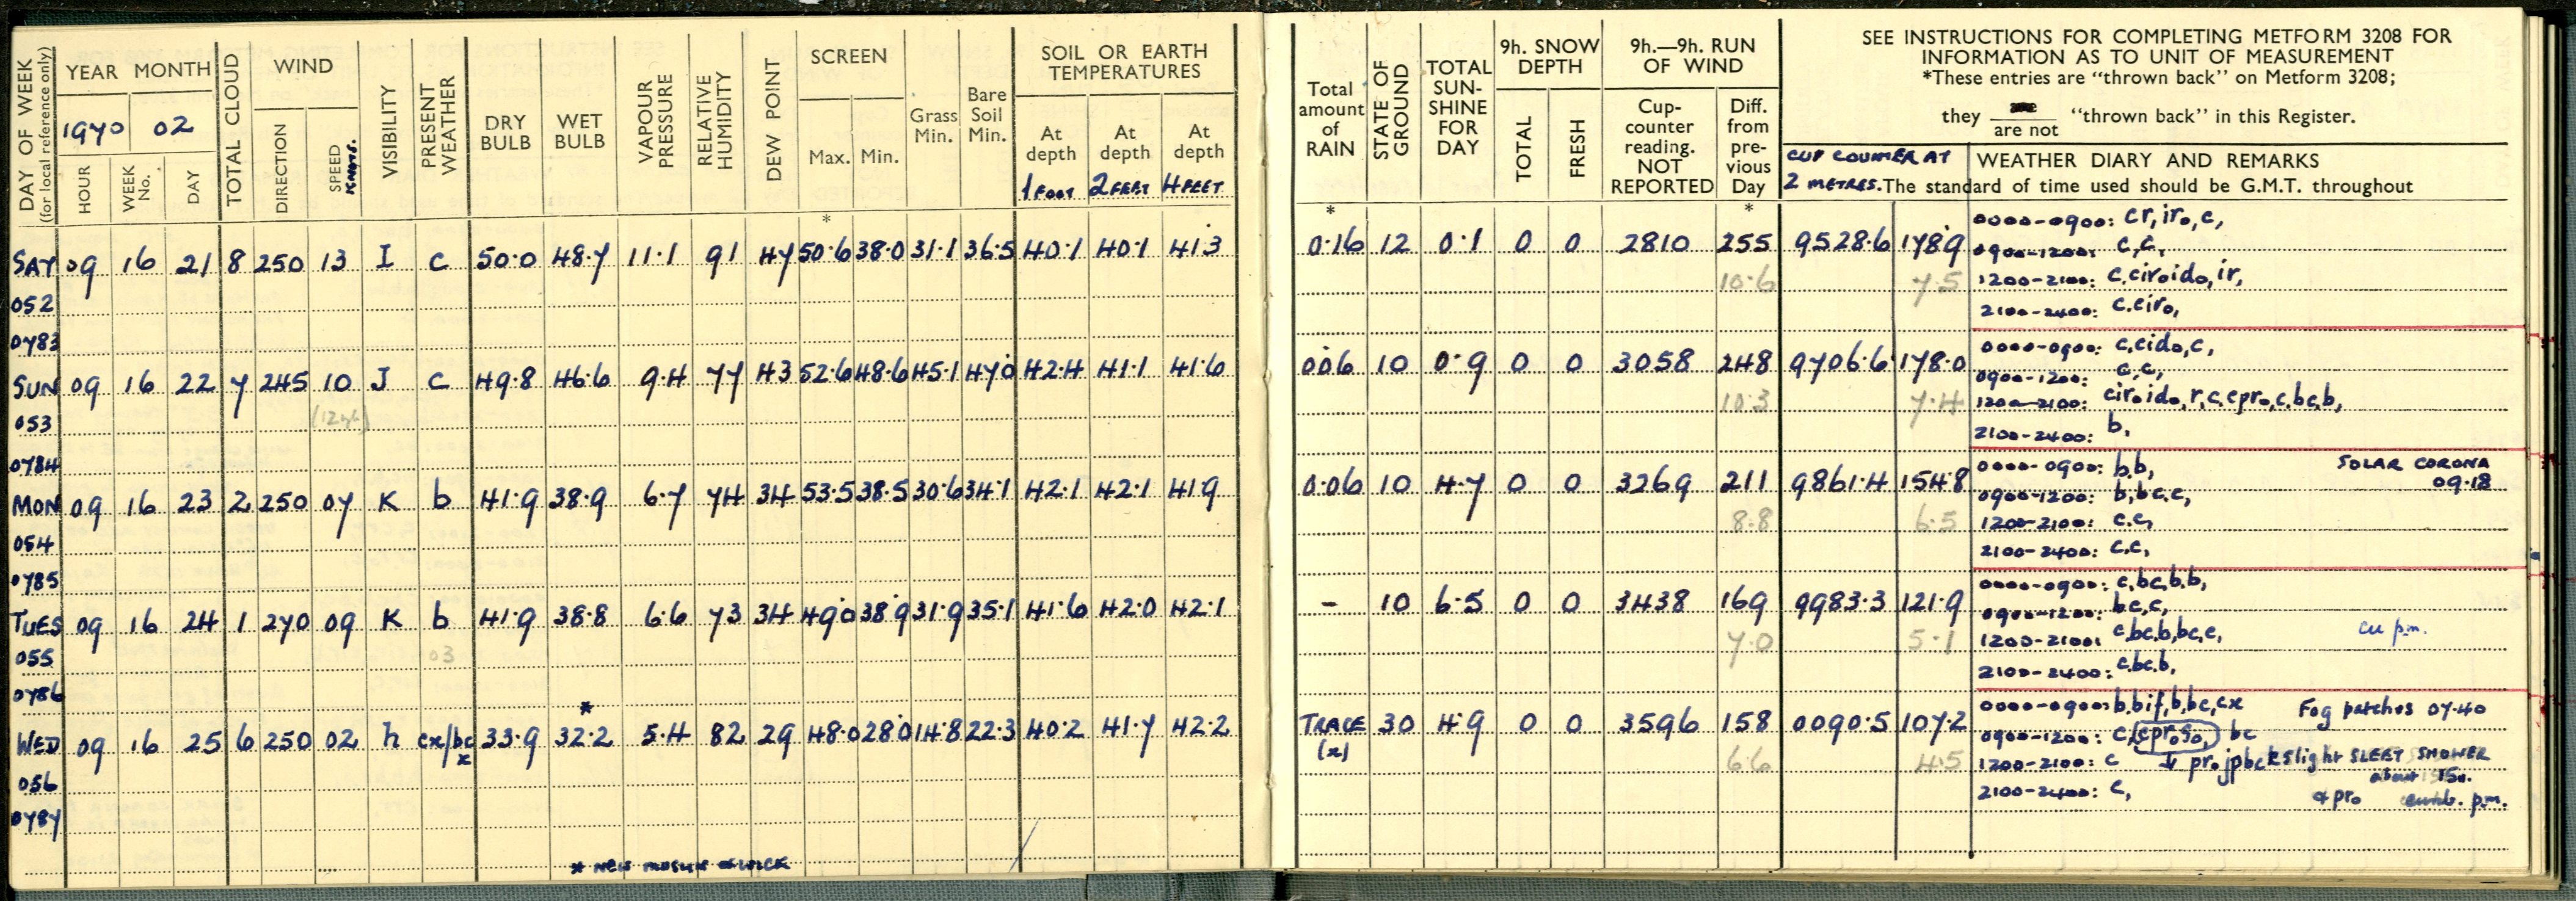 DAY OF WEEK (for local reference only)
YEAR MONTH
1970 02
HOUR
WEEK No.
DAY
TOTAL CLOUD
WIND
DIRECTION
SPEED KNOTS.
VISIBILITY
PRESENT WEATHER
DRY BULB
WET BULB
VAPOUR PRESSURE
RELATIVE HUMIDITY
DEW POINT
SCREEN
Max. Min.
Grass Min.
Bare Soil Min.
SOIL OR EARTH TEMPERATURES
At depth 1 FOOT
At depth 2 FEET
At depth 4 FEET
Total amount of RAIN
STATE OF GROUND
TOTAL SUN-SHINE FOR DAY
9h. SNOW DEPTH
TOTAL
FRESH
9h.—9h. RUN OF WIND
Cup-counter reading. NOT REPORTED
Diff. from pre-vious Day
SEE INSTRUCTIONS FOR COMPLETING METFORM 3208 FOR
INFORMATION AS TO UNIT OF MEASUREMENT
*These entries are "thrown back" on Metform 3208;
they are not "thrown back" in this Register.
CUP COUNTER AT
2 METRES.
WEATHER DIARY AND REMARKS
The standard of time used should be G.M.T. throughout
* * *
SAT 09 16 21 8 250 13 I c 50.0 48.7 11.1 91 47 50.6 38.0 31.1 36.5 40.1 40.1 41.3 0.16 12 0.1 0 0 2810 255 9528.6 178.9
052
10.6 7.5
0783
0000-0900: cr, iro, c,
0900-1200: c, c,
1200-2100: c.ciroido, ir,
2100-2400: c.ciro,
SUN 09 16 22 7 245 10 J c 49.8 46.6 9.4 77 43 52.6 48.6 45.1 47.0 42.4 41.1 41.6 0.06 10 0.9 0 0 3058 248 9706.6 178.0
053
10.3 7.4
0784
0000-0900: c,cido,c,
0900-1200: c,c,
1200-2100: ciroido,r,c,cpro,c,bc,b,
2100-2400: b,
MON 09 16 23 2 250 07 K b 41.9 38.9 6.7 74 34 53.5 38.5 30.6 34.1 42.1 42.1 41.9 0.06 10 4.7 0 0 3269 211 9861.4 154.8
054
8.8 6.5
0785
0000-0900: b,b,
SOLAR CORONA
09.18
0900-1200: b,bc,c,
1200-2100: c.c,
2100-2400: c,c,
TUES 09 16 24 1 270 09 K b 41.9 38.8 6.6 73 34 49.0 38.9 31.9 35.1 41.6 42.0 42.1 - 10 6.5 0 0 3438 169 9983.3 121.9
055 03
7.0 5.1
0786
0000-0900: c,bc,b,b,
0900-1200: bc,c,
1200-2100: c,bc,b,bc,c, cu p.m.
2100-2400: c,bc,b,
WED 09 16 25 6 250 02 h cx/bc x 33.9 32.2* 5.4 82 29 48.0 28.0 14.8 22.3 40.2 41.7 42.2 TRACE (x) 30 4.9 0 0 3596 158 0090.5 107.2
056
6.6 4.5
0787
0000-0900: b,bif,b,bc,cx Fog patches 07.40
0900-1200: c,cproso, bc
1200-2100: c pro jpbc Slight SLEET SHOWER
about
2100-2400: c, & pro p.m.
* NEW MUSLIN & WICK